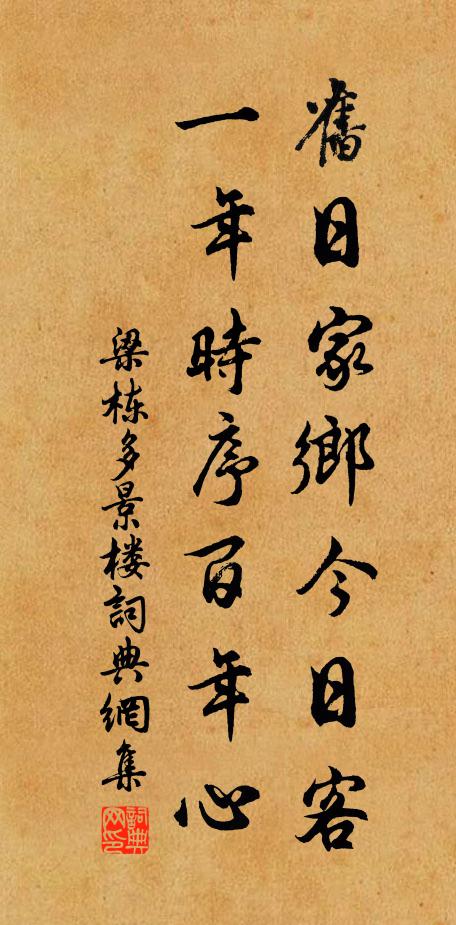 舊日家鄉今日客
一年時序百年心
梁栋多景楼詞典網集
詞典网印